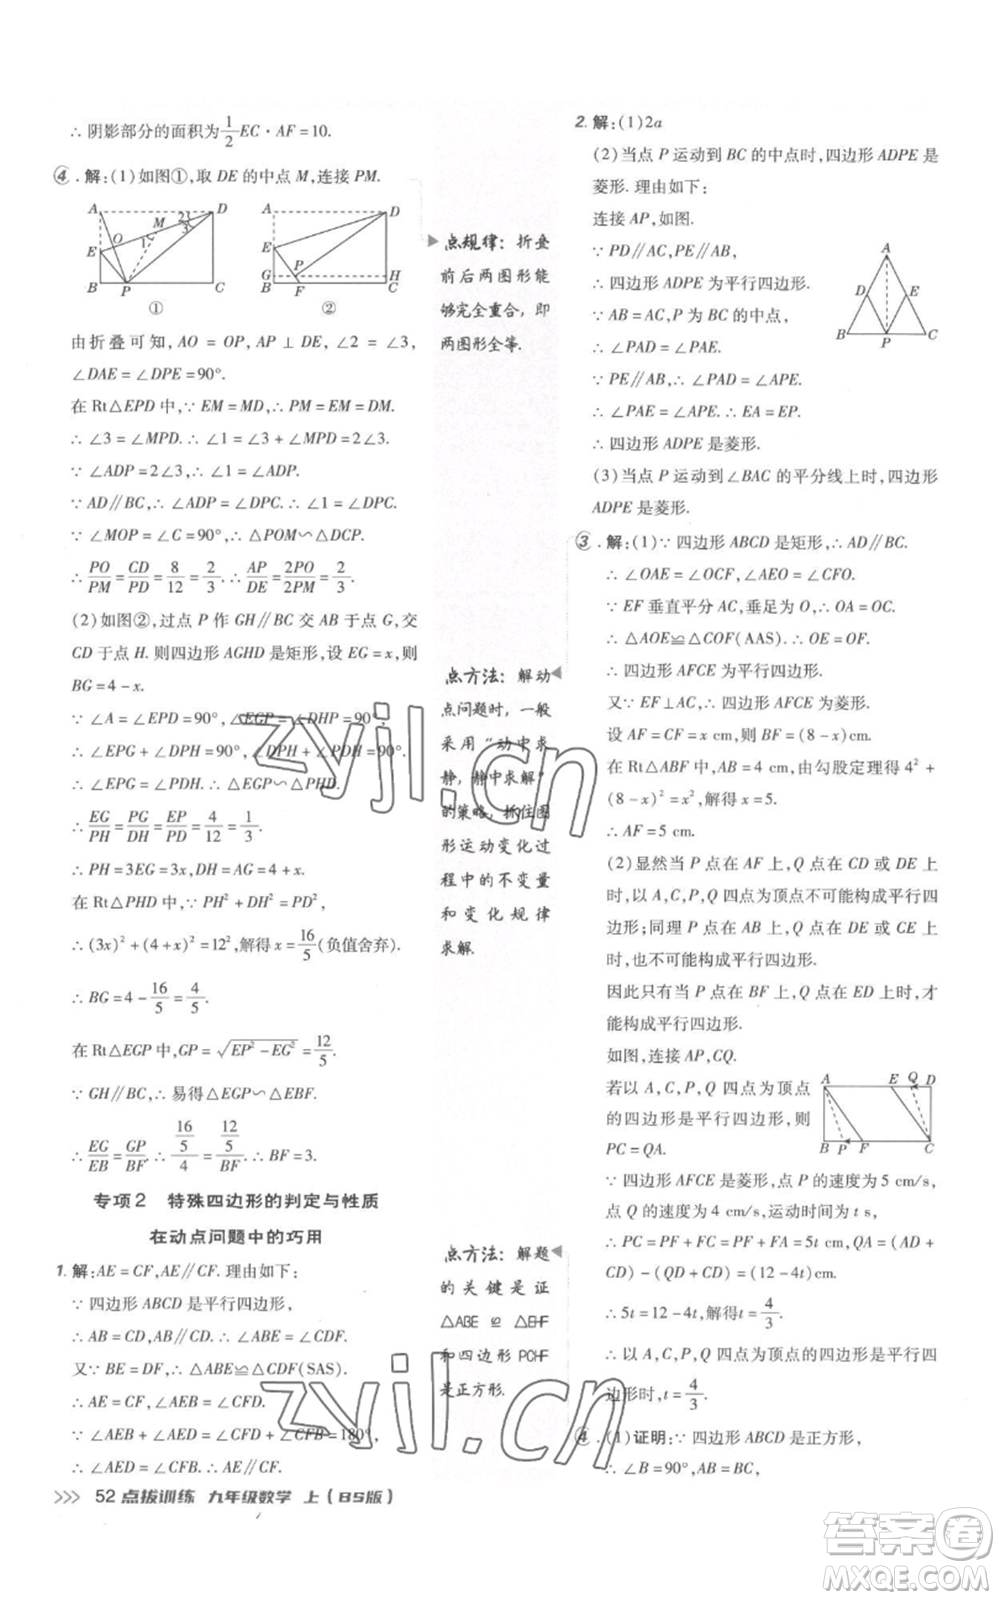 ∴ 阴影部分的面积为 1/2 EC · AF = 10.
④. 解:(1)如图①,取 DE 的中点 M,连接 PM.
A D E O M 1 2 3 B P C
①
A D E G P H B F C
②
由折叠可知, AO = OP, AP ⊥ DE, ∠2 = ∠3,
∠DAE = ∠DPE = 90°.
在 Rt△EPD 中,∵ EM = MD,∴ PM = EM = DM.
∴ ∠3 = ∠MPD. ∴ ∠1 = ∠3 + ∠MPD = 2∠3.
∵ ∠ADP = 2∠3,∴ ∠1 = ∠ADP.
∵ AD∥BC,∴ ∠ADP = ∠DPC. ∴ ∠1 = ∠DPC.
∵ ∠MOP = ∠C = 90°,∴ △POM∽△DCP.
∴ PO/PM = CD/PD = 8/12 = 2/3. ∴ AP/DE = 2PO/2PM = 2/3.
(2)如图②,过点 P 作 GH∥BC 交 AB 于点 G,交
CD 于点 H. 则四边形 AGHD 是矩形,设 EG = x,则
BG = 4 - x.
∵ ∠A = ∠EPD = 90°, ∠EGP = ∠DHP = 90°,
∴ ∠EPG + ∠DPH = 90°, ∠DPH + ∠PDH = 90°.
∴ ∠EPG = ∠PDH. ∴ △EGP∽△PHD.
∴ EG/PH = PG/DH = EP/PD = 4/12 = 1/3.
∴ PH = 3EG = 3x, DH = AG = 4 + x.
在 Rt△PHD 中,∵ PH² + DH² = PD²,
∴ (3x)² + (4 + x)² = 12²,解得 x = 16/5(负值舍弃).
∴ BG = 4 - 16/5 = 4/5.
在 Rt△EGP 中, GP = √(EP² - EG²) = 12/5.
∵ GH∥BC,∴ 易得△EGP∽△EBF.
∴ EG/EB = GP/BF. ∴ (16/5)/4 = (12/5)/BF. ∴ BF = 3.
专项2 特殊四边形的判定与性质
在动点问题中的巧用
1. 解:AE = CF, AE∥CF. 理由如下:
∵ 四边形 ABCD 是平行四边形,
∴ AB = CD, AB∥CD. ∴ ∠ABE = ∠CDF.
又∵ BE = DF,∴ △ABE≌△CDF(SAS).
∴ AE = CF, ∠AEB = ∠CFD.
∵ ∠AEB + ∠AED = ∠CFD + ∠CFB = 180°,
∴ ∠AED = ∠CFB. ∴ AE∥CF.
点规律:折叠
前后两图形能
够完全重合,即
两图形全等.
点方法:解动
点问题时,一般
采用“动中求
静,静中求解”
的策略,抓住图
形运动变化过
程中的不变量
和变化规律
求解.
点方法:解题
的关键是证
△ABE ≌ △EHF
和四边形 PCHF
是正方形.
2. 解:(1)2a
(2)当点 P 运动到 BC 的中点时,四边形 ADPE 是
菱形. 理由如下:
连接 AP,如图.
∵ PD∥AC, PE∥AB,
∴ 四边形 ADPE 为平行四边形.
∵ AB = AC, P 为 BC 的中点,
∴ ∠PAD = ∠PAE.
∵ PE∥AB,∴ ∠PAD = ∠APE.
∴ ∠PAE = ∠APE. ∴ EA = EP.
∴ 四边形 ADPE 是菱形.
A D E B P C
(3)当点 P 运动到∠BAC 的平分线上时,四边形
ADPE 是菱形.
③. 解:(1)∵ 四边形 ABCD 是矩形,∴ AD∥BC.
∴ ∠OAE = ∠OCF, ∠AEO = ∠CFO.
∵ EF 垂直平分 AC,垂足为 O,∴ OA = OC.
∴ △AOE≌△COF(AAS). ∴ OE = OF.
∴ 四边形 AFCE 为平行四边形.
又∵ EF⊥AC,∴ 四边形 AFCE 为菱形.
设 AF = CF = x cm,则 BF = (8 - x)cm.
在 Rt△ABF 中, AB = 4 cm,由勾股定理得 4² +
(8 - x)² = x²,解得 x = 5.
∴ AF = 5 cm.
(2)显然当 P 点在 AF 上,Q 点在 CD 或 DE 上
时,以 A,C,P,Q 四点为顶点不可能构成平行四
边形;同理 P 点在 AB 上,Q 点在 DE 或 CE 上
时,也不可能构成平行四边形.
因此只有当 P 点在 BF 上,Q 点在 ED 上时,才
能构成平行四边形.
如图,连接 AP,CQ.
若以 A,C,P,Q 四点为顶点
的四边形是平行四边形,则
PC = QA.
A E Q D B P F C
∵ 四边形 AFCE 是菱形,点 P 的速度为 5 cm/s,
点 Q 的速度为 4 cm/s,运动时间为 t s,
∴ PC = PF + FC = PF + AF = 5t cm, QA = (AD +
CD) - (CD + QD) = (12 - 4t)cm.
∴ 5t = 12 - 4t,解得 t = 4/3.
∴ 以 A,C,P,Q 四点为顶点的四边形是平行四
边形时, t = 4/3.
④. (1)证明:∵ 四边形 ABCD 是正方形,
∴ AB = BC, ∠B = ∠BCD = ∠DCG = 90°.
>>> 52 点拨训练 九年级数学 上(BS版)
zyjl.cn
zyjl.cn
答案圈
MXQE.COM